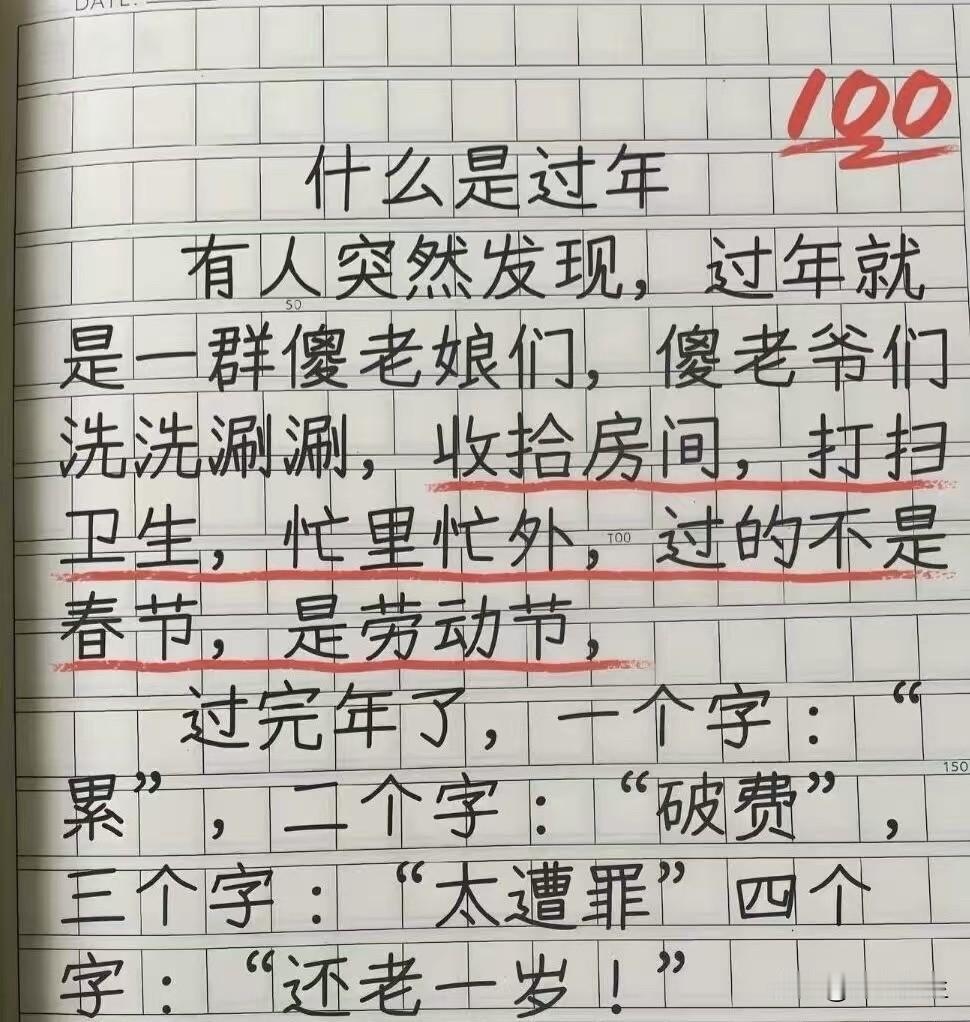 DATE:
100
什么是过年
有人突然发现，过年就
50
是一群傻老娘们，傻老爷们
洗洗涮涮，收拾房间，打扫
卫生，忙里忙外，过的不是
100
春节，是劳动节，
过完年了，一个字：“
150
累”，二个字：“破费”，
三个字：“太遭罪”四个
字：“还老一岁！”